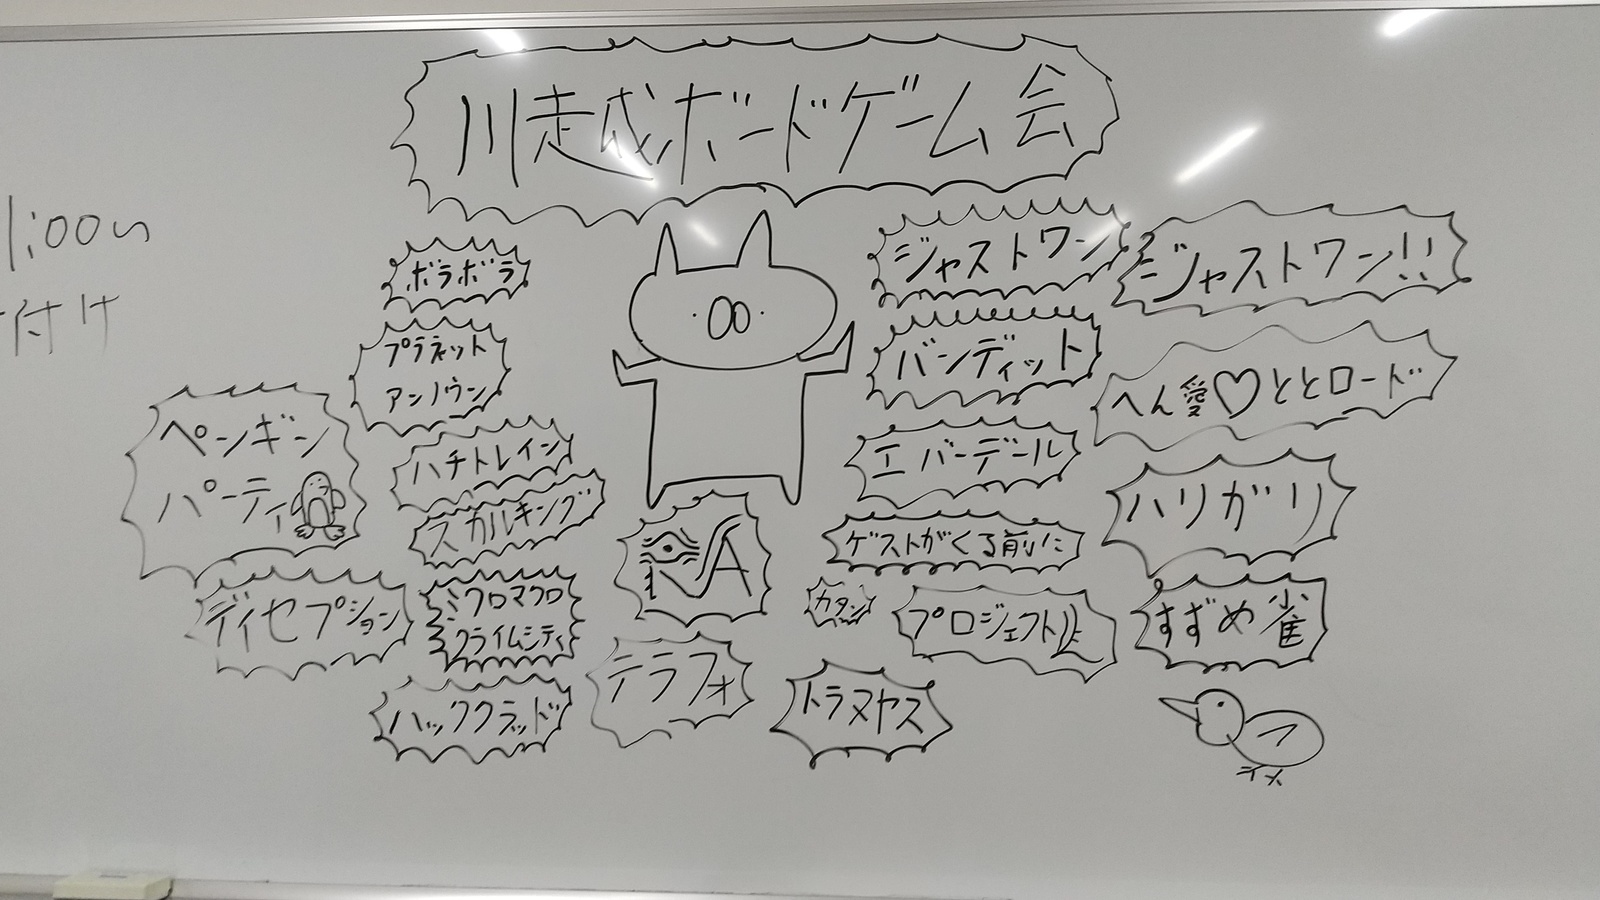 川越ボードゲーム会
1:00〜
付け
ボラボラ
プラネット
アンノウン
ペンギン
パーティ
ハチトレイン
スカルキング
ディセプション
ミクロマクロ
クライムシティ
ハックラッド
RA
テラフォ
ジャストワン
ジャストワン!!
バンディット
へん愛♡ととロード
エバーデール
ハリガリ
ゲストがくる前に
カタン
プロジェクトL
すずめ雀
トラヌヤス